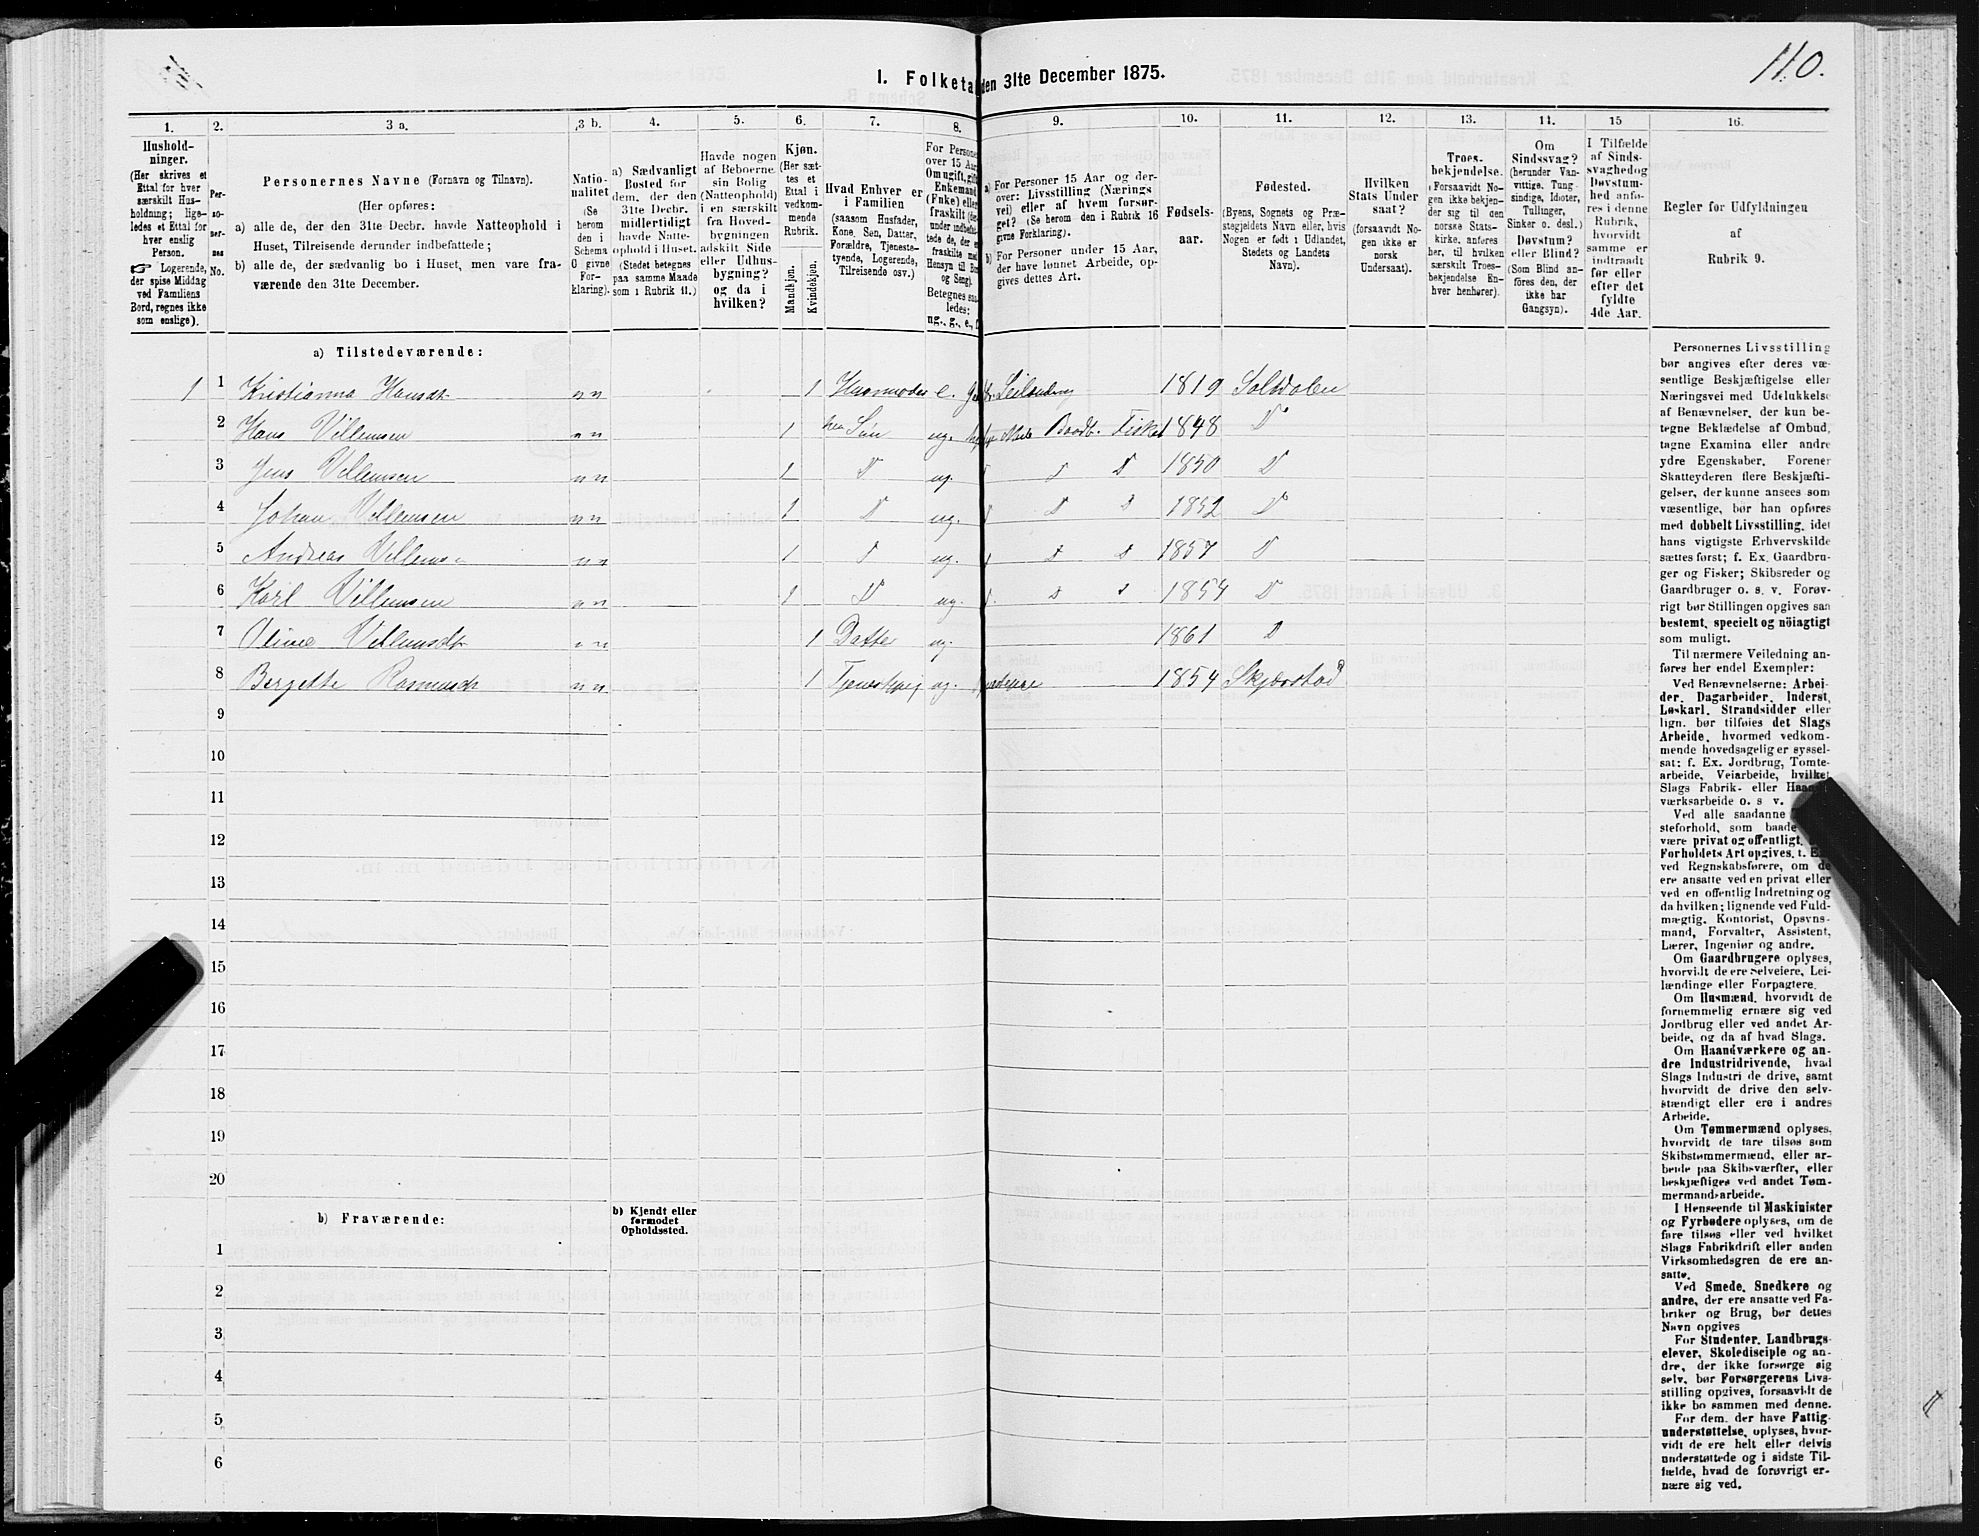 110.
1. Folketal den 31te December 1875.
1. 2. 3 a. 3 b. 4. 5. 6. 7. 8. 9. 10. 11. 12. 13. 14. 15 16.
Hushold-
ninger.
(Her skrives et
Ettal for hver
særskilt Hus-
holdning; lige-
ledes et Ettal for
hver enslig
Person.
☞ Logerende,
der spise Middag
ved Familiens
Bord, regnes ikke
som enslige).
Per-
so-
ner-
nes
No.
Personernes Navne (Fornavn og Tilnavn).
(Her opføres:
a) alle de, der den 31te Decbr. havde Natteophold i
Huset, Tilreisende derunder indbefattede;
b) alle de, der sædvanlig bo i Huset, men vare fra-
værende den 31te December.
Natio-
nalitet
(Se
herom
den i
Schema
O givne
For-
klaring).
a) Sædvanligt
Bosted for
dem, der den
31te Decbr.
midlertidigt
havde Natte-
ophold i Huset.
(Stedet betegnes
paa samme Maade
som i Rubrik 11.)
Havde nogen
af Beboerne
sin Bolig
(Natteophold)
i en særskilt
fra Hoved-
bygningen
adskilt Side
eller Udhus-
bygning?
og da i
hvilken?
Kjøn.
(Her sæt-
tes et
Ettal i
vedkom-
mende
Rubrik.
Mandkjøn.
Kvindekjøn.
Hvad Enhver er
i Familien
(saasom Husfader,
Kone, Søn, Datter,
Forældre, Tjeneste-
tyende, Logerende,
Tilreisende osv.)
For Personer
over 15 Aar
Om ugift, gift,
Enkemand
(Enke) eller
fraskilt
Hensyn til Bord
og Seng).
Betegnes saa-
ledes:
ug., g., e., f.
a) For Personer 15 Aar og der-
over: Livsstilling (Nærings
vei) eller af hvem forsør-
get? (Se herom den i Rubrik 16
givne Forklaring).
b) For Personer under 15 Aar,
der have lønnet Arbeide, op-
gives dettes Art.
Fødsels-
aar.
Fødested.
(Byens, Sognets og Præ-
stegjeldets Navn eller, hvis
Nogen er født i Udlandet,
Stedets og Landets
Navn).
Hvilken
Stats Under
saat?
(forsaavidt No-
gen ikke er
norsk
Undersaat).
Troes-
bekjendelse.
(Forsaavidt No-
gen ikke bekjen-
der sig til den
norske Stats-
kirke, anføres
her, til hvilken
særskilt Troes-
bekjendelse En-
hver henhører).
Om
Sindssvag?
(herunder Van-
vittige, Tung-
sindige, Idioter,
Tullinger,
Sinker o. desl.)
Døvstum?
eller Blind?
(Som Blind an-
føres den, der
ikke har
Gangsyn).
I Tilfælde
af Sinds-
svaghed og
Døvstum-
hed anfø-
res i denne
Rubrik,
hvorvidt
samme er
indtraadt
før eller
efter det
fyldte
4de Aar.
Regler for Udfyldningen
af
Rubrik 9.
a) Tilstedeværende:
1 1 Kristianna Hansdt nn 1 Huusmoder e. 1819 Saltdalen
2 Hans Villumsen nn 1 Søn ug. 1848 D
3 Jens Villumsen nn 1 D ug. D D 1850 D
4 Johan Villumsen nn 1 D ug. D D 1852 D
5 Andreas Villumsen nn 1 D ug. D D 1857 D
6 Karl Villumsen nn 1 D ug. D D 1854 D
7 Oline Villumsdt nn 1 Datter ug. 1861 D
8 Bergette Rasmusdt nn 1 ug. 1854 Skjærstad
9
10
11
12
13
14
15
16
17
18
19
20
b) Fraværende: b) Kjendt eller
formodet
Opholdssted.
1
2
3
4
5
6
Personernes Livsstilling
bør angives efter deres væ-
sentlige Beskjæftigelse eller
Næringsvei med Udelukkelse
af Benævnelser, der kun be-
tegne Beklædelse af Ombud,
tagne Examina eller andre
ydre Egenskaber. Forener
Skatteyderen flere Beskjæfti-
gelser, der kunne ansees som
væsentlige, bør han opføres
med dobbelt Livsstilling, idet
hans vigtigste Erhvervskilde
sættes først; f. Ex. Gaardbru-
ger og Fisker; Skibsreder og
Gaardbruger o. s. v. Forøv-
rigt bør Stillingen opgives saa
bestemt, specielt og nöiagtigt
som muligt.
Til nærmere Veiledning an-
føres her endel Exempler:
Ved Benævnelserne: Arbei-
der, Dagarbeider, Inderst,
Løskarl, Strandsidder eller
lign. bør tilføies det Slags
Arbeide, hvormed vedkom-
mende hovedsagelig er syssel-
sat: f. Ex. Jordbrug, Tomte-
arbeide, Veiarbeide, hvilket
Slags Fabrik- eller
værksarbeide o. s v.
Ved alle saadanne
steforhold, som baade
være privat og offentligt,
Forholdets Art opgives, t. Ex.
ved Regnskabsførere, om de
ere ansatte ved en privat eller
ved en offentlig Indretning og
da hvilken; lignende ved Fuld-
mægtig, Kontorist, Opsyns-
mand, Forvalter, Assistent,
Lærer, Ingeniør og andre.
Om Gaardbrugere oplyses,
hvorvidt de ere Selveiere, Lei-
lændinge eller Forpagtere.
Om Husmænd, hvorvidt de
fornemmelig ernære sig ved
Jordbrug eller ved andet Ar-
beide, og da af hvad Slags.
Om Haandværkere og an-
dre Industridrivende, hvad
Slags Industri de drive, samt
hvorvidt de drive den selv-
stændigt eller ere i andres
Arbeide.
Om Tømmermænd oplyses,
hvorvidt de fare tilsøs som
Skibstømmermænd, eller ar-
beide paa Skibsværfter, eller
beskjæftiges ved andet Tøm-
mermandsarbeide.
I Henseende til Maskinister
og Fyrbødere oplyses, om de
fare tilsøs eller ved hvilket
Slags Fabrikdrift eller anden
Virksomhedsgren de ere an-
satte.
Ved Smede, Snedkere og
andre, der ere ansatte ved Fa-
briker og Brug, bør dettes
Navn opgives
For Studenter, Landbrugs-
elever, Skoledisciple og an-
dre, der ikke forsørge sig
selv, bør Forsørgerens Livs-
stilling opgives, forsaavidt de
ikke bo sammen med denne.
For dem, der have Fattig-
understøttelse, oplyses, hvor-
vidt de ere helt eller delvis
understøttede og i sidste Til-
fælde, hvad de forøvrigt er-
nære sig ved.